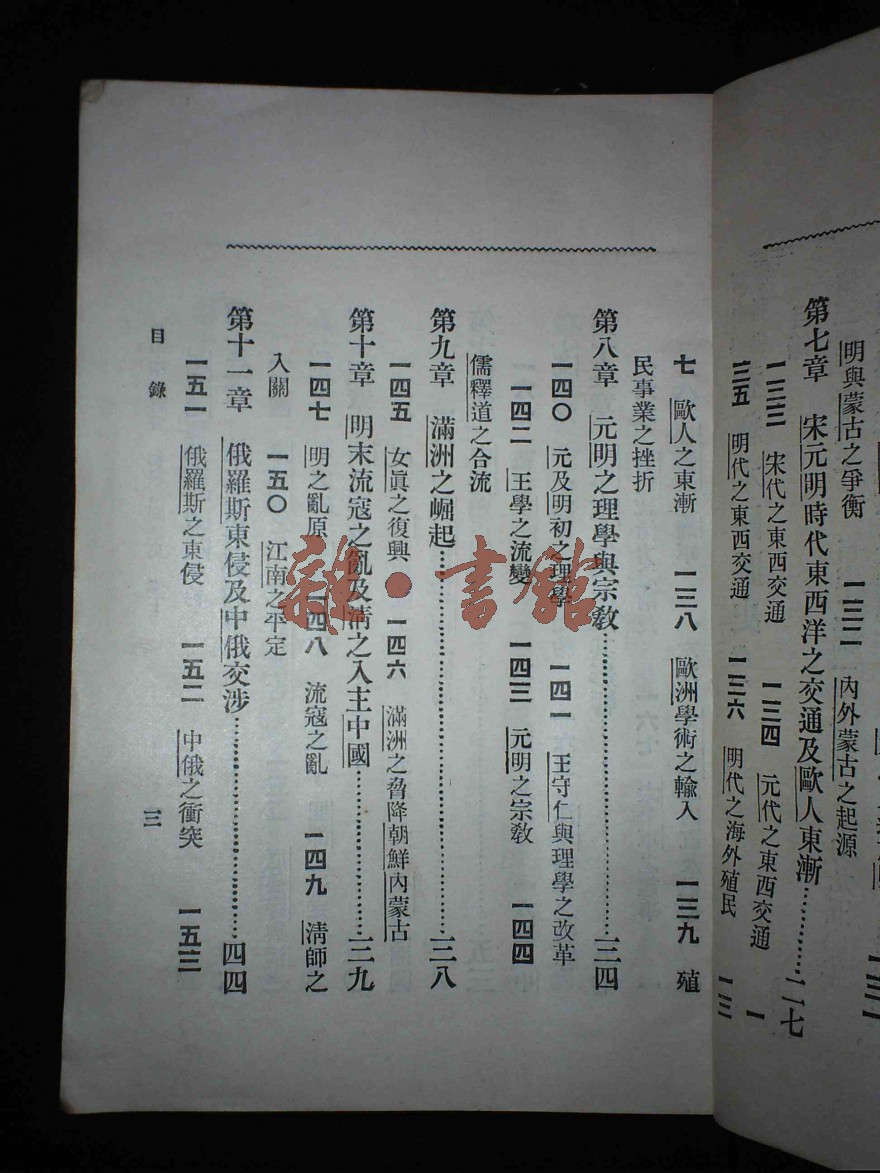 明與蒙古之爭衡 一三二 內外蒙古之起源
第七章 宋元明時代東西洋之交通及歐人東漸…………二七
一三三 宋代之東西交通 一三四 元代之東西交通 一
三五 明代之東西交通 一三六 明代之海外殖民 一三
七 歐人之東漸 一三八 歐洲學術之輸入 一三九 殖
民事業之挫折
第八章 元明之理學與宗教…………三四
一四〇 元及明初之理學 一四一 王守仁與理學之改革
一四二 王學之流變 一四三 元明之宗教 一四四
儒釋道之合流
第九章 滿洲之崛起…………三八
一四五 女眞之復興 一四六 滿洲之脅降朝鮮內蒙古
第十章 明末流寇之亂及淸之入主中國…………三九
一四七 明之亂原 一四八 流寇之亂 一四九 淸師之
入關 一五〇 江南之平定
第十一章 俄羅斯東侵及中俄交涉…………四四
一五一 俄羅斯之東侵 一五二 中俄之衝突 一五三
目錄 三
雜·書館